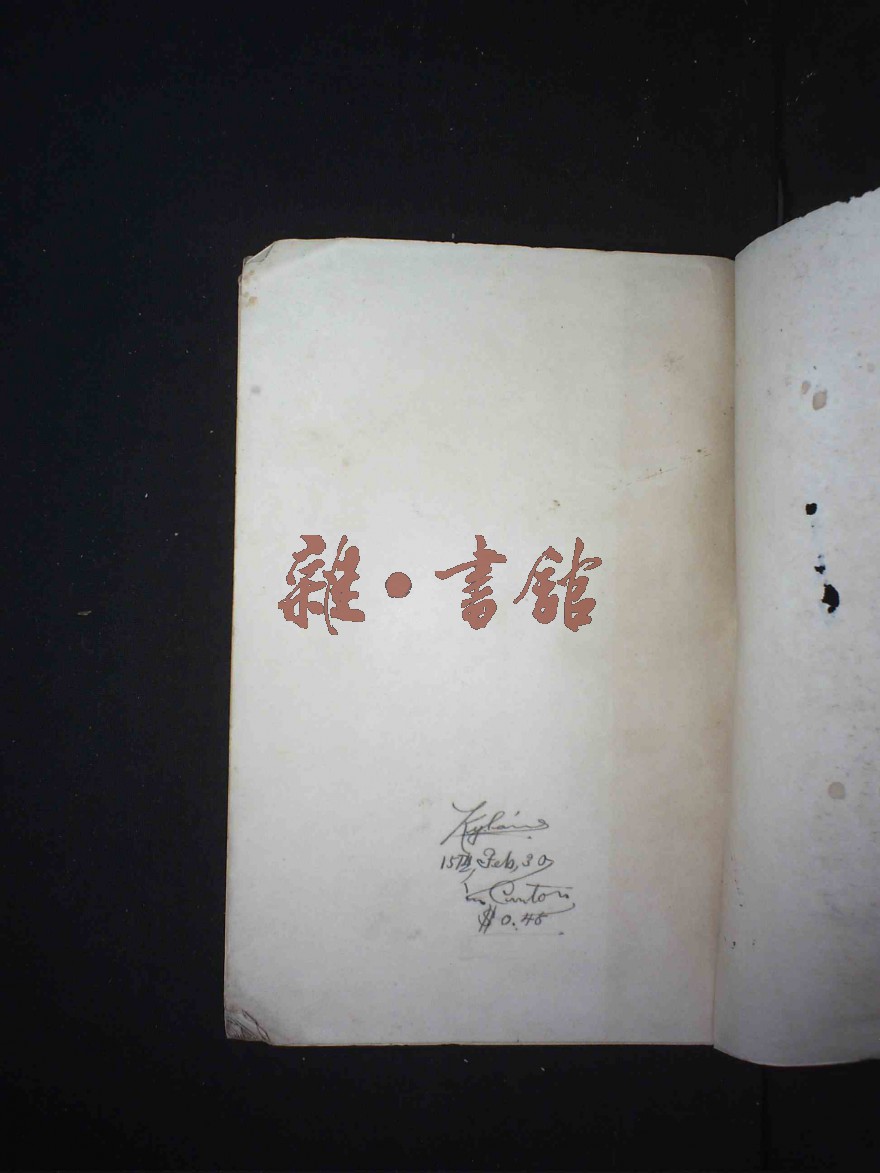 雜·書館
15TH, Feb, 30
in Canton
$0.45